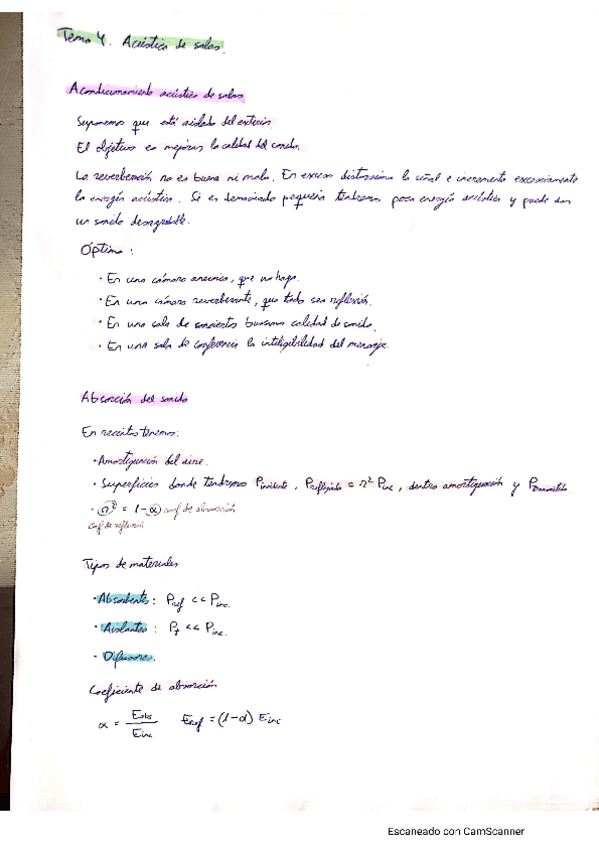 Tema 4. Acústica de salas.
Acondicionamiento acústico de salas
Suponemos que está aislado del exterior.
El objetivo es mejorar la calidad del sonido.
La reverberación no es buena ni mala. En exceso distorsiona la señal e incrementa excesivamente
la energía acústica. Si es demasiado pequeña tendremos poca energía acústica y puede dar
un sonido desagradable.
Óptimo:
· En una cámara anecoica, que no haya.
· En una cámara reverberante, que todo sea reflexión.
· En una sala de conciertos buscamos calidad de sonido.
· En una sala de conferencia la inteligibilidad del mensaje.
Absorción del sonido
En recintos tenemos:
· Amortiguación del aire.
· Superficies donde tendremos Pincidente, Preflejada = r² Pinc, dentro amortiguación y Ptransmitida
· r² = 1-α coef de absorción
Coef de reflexión
Tipos de materiales
· Absorbentes: Pref << Pinc.
· Aislantes: Pt << Pinc.
· Difusores.
Coeficiente de absorción
α = Eabs / Einc   Eref = (1-α) Einc
Escaneado con CamScanner